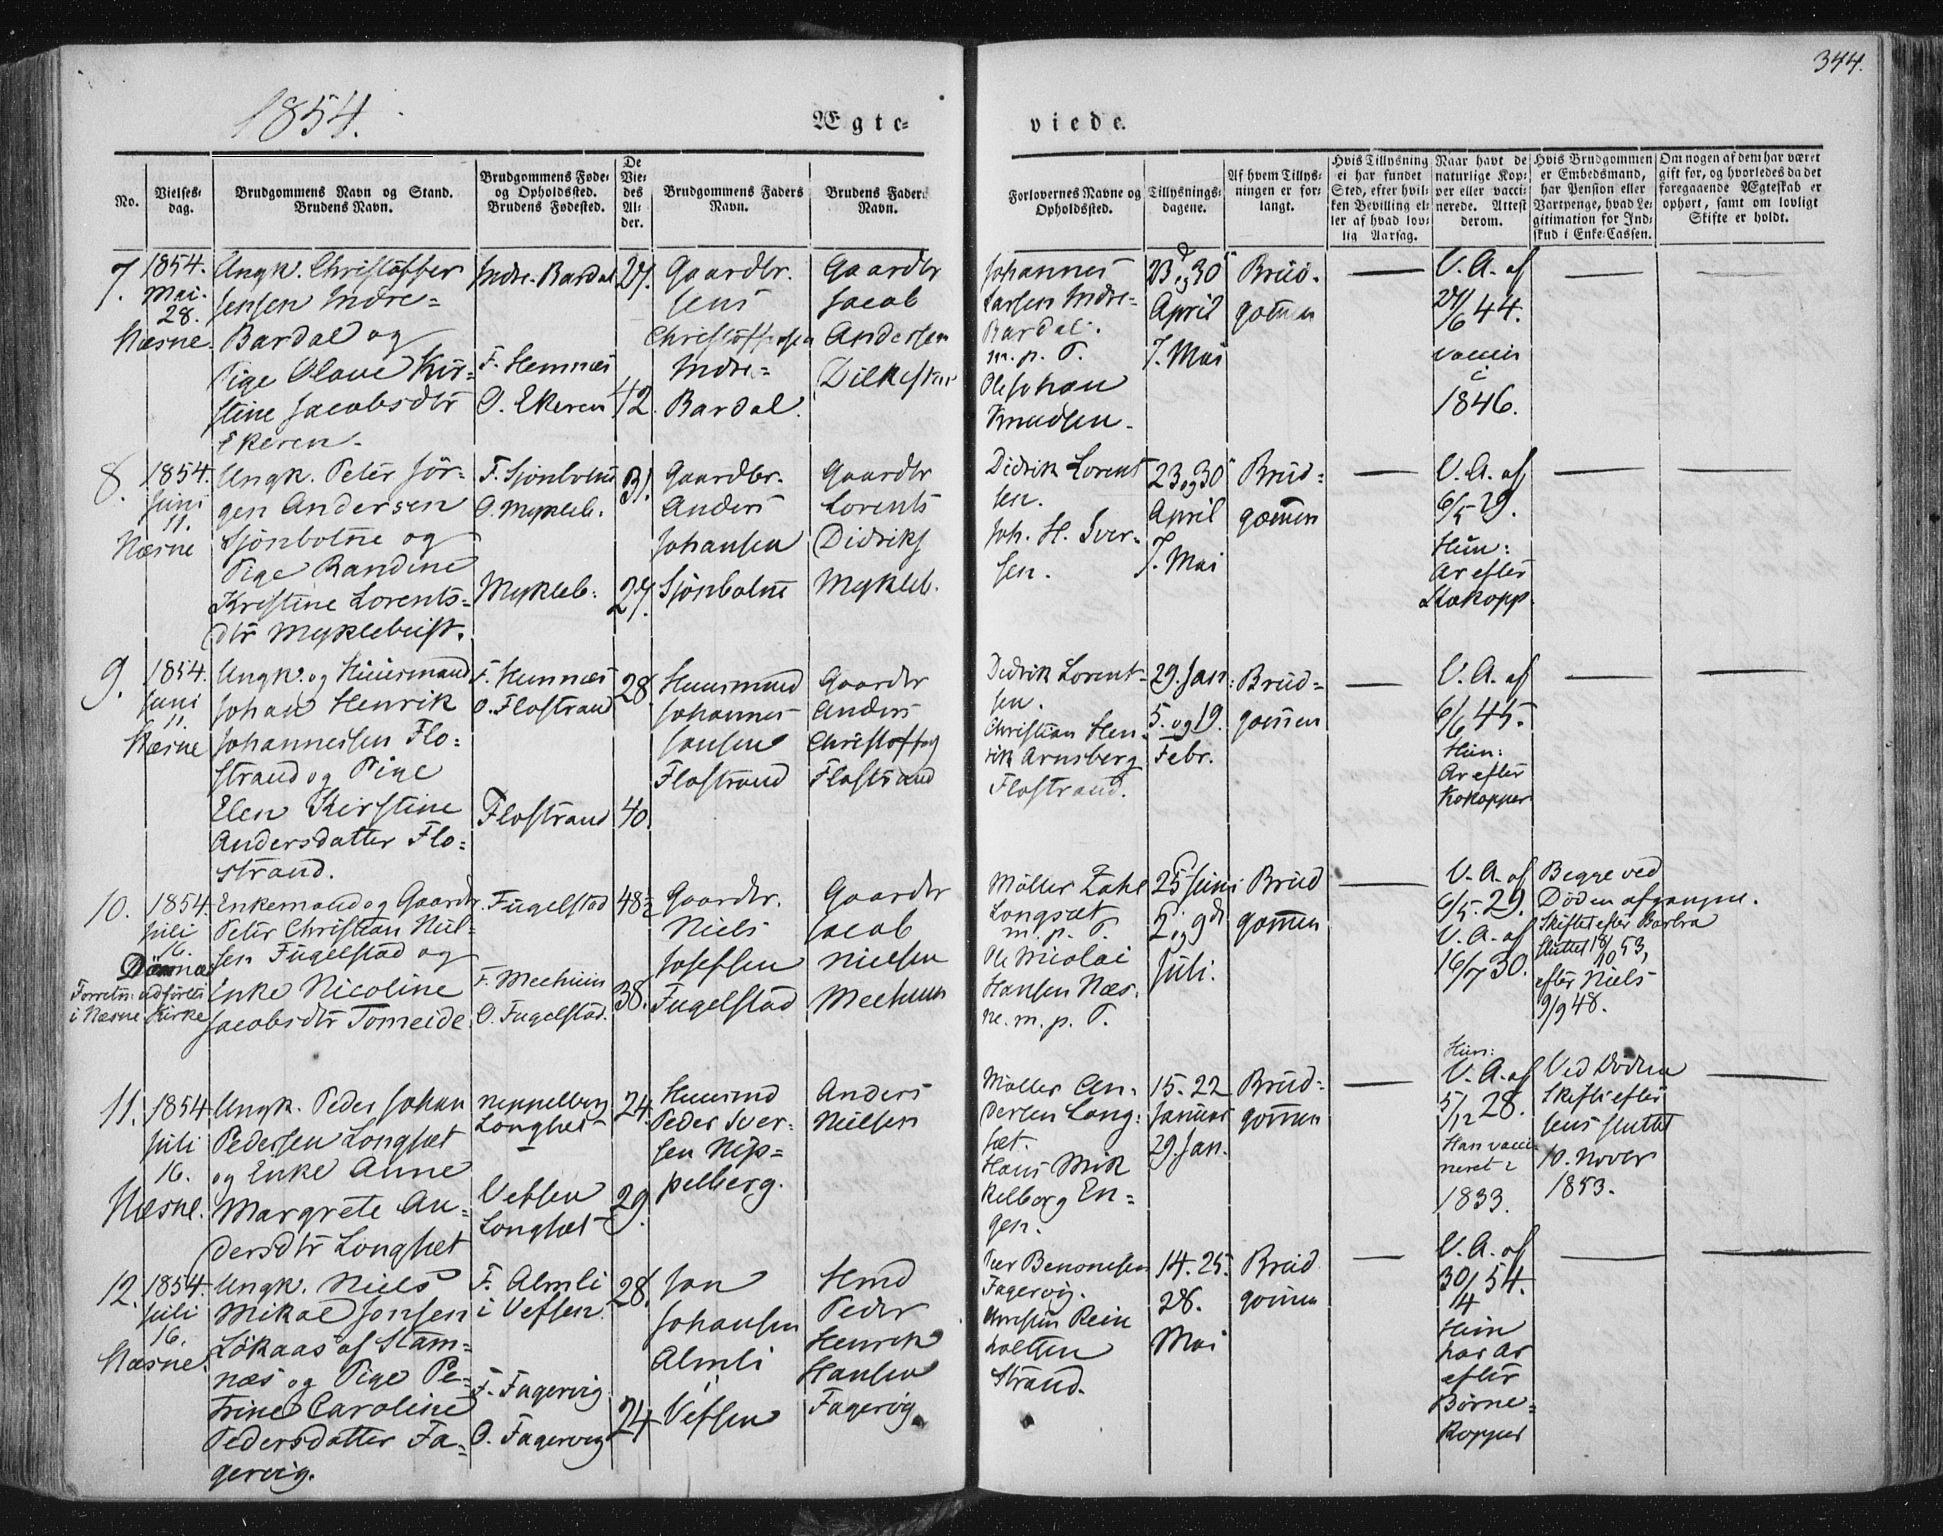 344.
1854.
Ægte-
viede.
No.
Vielses-
dag.
Brudgommens Navn og Stand.
Brudens Navn.
Brudgommens Føde-
og Opholdssted.
Brudens Fødested.
De
Vie-
des
Al-
der.
Brudgommens Faders
Navn.
Brudens Faders
Navn.
Forlovernes Navne og
Opholdssted.
Tillysnings-
dagene.
Af hvem Tillys-
ningen er for-
langt.
Hvis Tillysning
ei har fundet
Sted, efter hvil-
ken Bevilling el-
ler af hvad lov-
lig Aarsag.
Naar havt de
naturlige Kop-
per eller vacci-
nerede. Attest
derom.
Hvis Brudgommen
er Embedsmand,
har Pension eller
Vartpenge, hvad Le-
gitimation for Ind-
skud i Enke-Cassen.
Om nogen af dem har været
gift før, og hvorledes da det
foregaaende Ægteskab er
ophørt, samt om lovligt
Skifte er holdt.
7.
1854.
Mai.
28.
Næsne.
Ungk. Christoffer
Jensen Indre-
Bardal og
Pige Olave Kir-
stine Jacobsdtr
Ekeren.
Indre-Bardal
F. Hemnæs
O. Ekeren
27.
42.
Gaardbr.
Jens
Christoffersen
Indre-
Bardal.
Gaardbr
Jacob
Andersen
Johannes
Larsen Indre-
Bardal.
m. p. P.
Ole Johan
Knudsen.
23 og 30
April
7. Mai
Brud-
gommen
V. A. af
27/6 44.
vaccin
i
1846.
8.
1854.
Juni
11.
Næsne
Ungk. Peter Jör-
gen Andersen
Sjönbotne og
Pige Randine
Kristine Lorents-
dtr Myklebust.
F. Sjönbotne
O. Mykleb.
Mykleb.
31.
27.
Gaardbr.
Anders
Johansen
Sjönbotne
Gaardbr
Lorents
Didriks
Mykleb.
Didrik Lorent
sen.
Joh. H. Iver-
sen.
23 og 30
April
7. Mai
Brud-
gommen
V. A. af
6/5 29.
Hun:
Ar efter
9.
1854.
Juni
11.
Næsne
Ungk. og Huusmand
Johan Henrik
Johannessen Flo-
strand og Pige
Elen Kirstine
Andersdatter Flo-
strand.
F. Hemnæs
O. Flostrand
Flostrand
28.
40.
Huusmand
Johannes
Jonsen
Flostrand
Gaardbr
Anders
Christoffers
Flostrand
Didrik Lorent-
sen.
Christian Hen-
rik Arnsberg
Flostrand.
29. Jan:
5. og 19.
Febr.
Brud-
gommen
V. A. af
6/6 45.
Hun:
Ar efter
Kokopper
10.
1854.
Juli
16.
Dönnæs
Forretn: udförtes
i Næsne Kirke
Enkemand og Gaardbr
Peter Christian Niel-
sen Fugelstad og
Enke Nicoline
Jacobsdtr Tomeide.
Fugelstad
F. Meehuun
O. Fugelstad.
48½
38.
Gaardbr.
Niels
Josefsen
Fugelstad
Gaardbr
Jacob
Nielsen
Meehuun
Möller Zahl
Langsæt
m. p. P.
Ole Nicolai
Hansen Næs-
ne. m. p. P.
25 Juni
2. og 9de
Juli.
Brud
gommen
V. A. af
6/5. 29.
V. A. af
16/7 30.
Begge ved
Döden afgangne.
Skiftet efter Barbra
sluttet 18/10 53,
efter Niels
9/9 48.
11.
1854
Juli
16.
Næsne.
Ungk. Peder Johan
Pedersen Longsæt
og Enke Anne
Margrete An-
dersdtr Longsæt
Neppelberg
Longsæt
Vefsen
Longsæt
24.
29.
Huusmd
Peder Iver-
sen Nep-
pelberg.
Anders
Nielsen
Möller An-
dersen Lang-
sæt.
Hans Mik
kelborg En-
gen.
15. 22
Januar
29. Jan.
Brud-
gommen
Hun:
V. A. af
5/12 28.
Han vacci-
neret
1833.
Ved Döden
Skifte efter
Jens sluttet
10. Novbr
1853.
12.
1854.
Juli
16.
Næsne.
Ungk. Niels
Mikal Jonsen
Lökaas af Stam-
næs og Pige Pe-
trine Caroline
Pedersdatter Fa-
gervig.
F. Almli
i Vefsen.
F. Fagervig
O. Fagervig
28.
24
Jon
Johansen
Almli
i
Vefsen
Hmd
Peder
Henrik
Hansen
Fagervig.
Peer Benonisen
Fagervig.
Christen Rein
holtsen
Strand.
14. 25.
28.
Mai
Brud
gommen
V. A. af
30/4 54.
Hun
har Ar
efter
Börne-
kopper